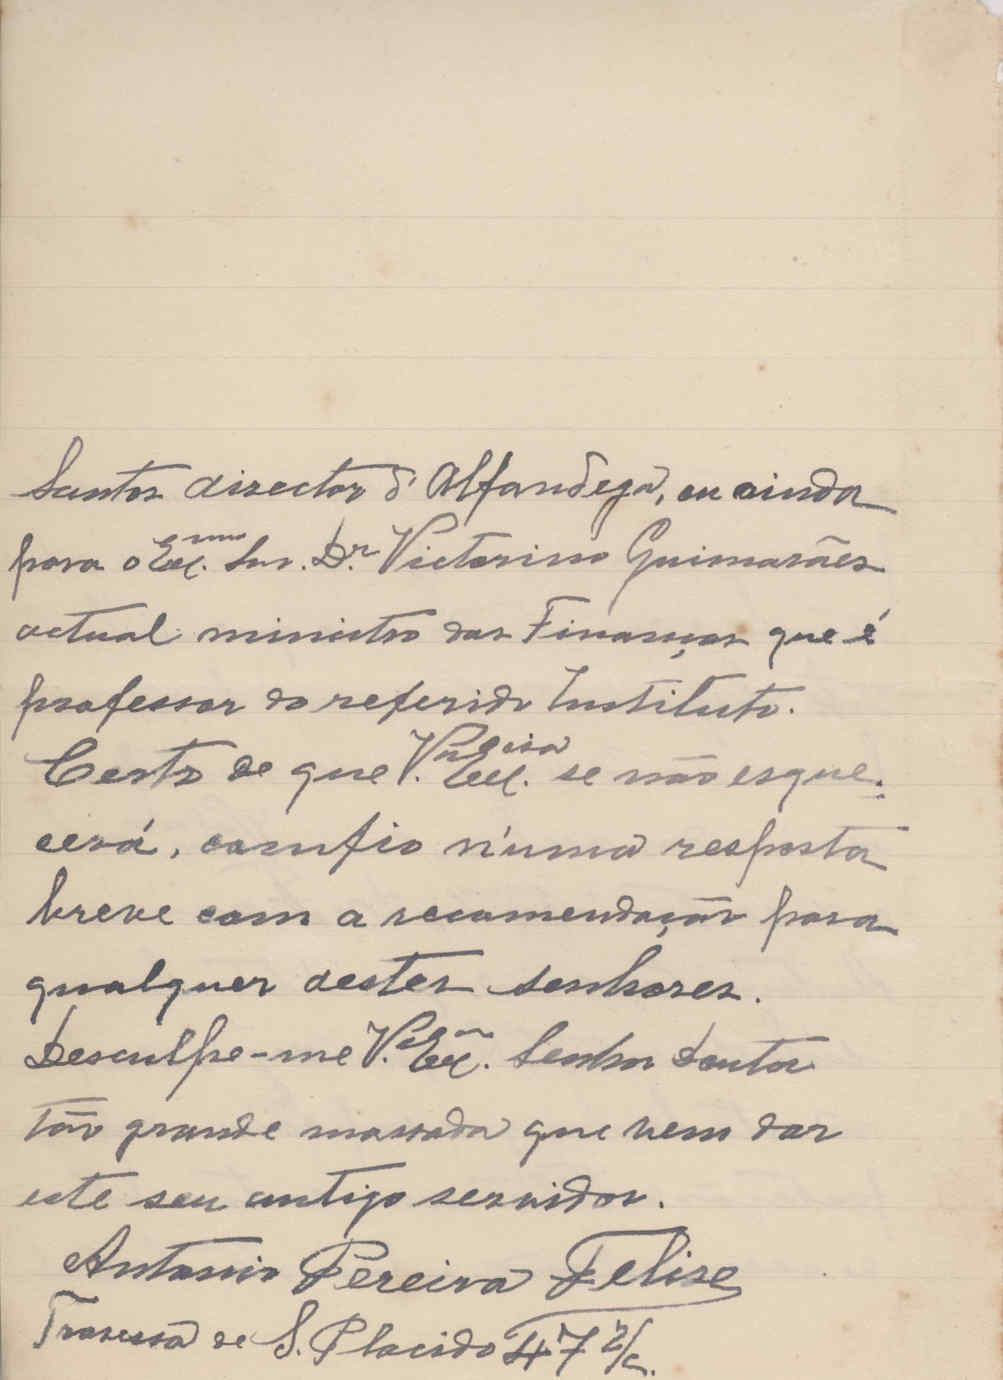 Santos director d'Alfandega, ou ainda
para o Ex.mo Snr. Dr. Victorino Guimarães
actual ministro das Finanças que é
professor do referido Instituto.
Certo de que V. Ex.cia se não esque-
cerá, comfio n'uma resposta
breve com a recomendação para
qualquer destes senhores.
Desculpe-me V. Ex.cia Senhor Doutor
tão grande massada que vem dar
este seu antigo servidor.
Antonio Pereira Felise
Travessa de S. Placido 47 r/c.